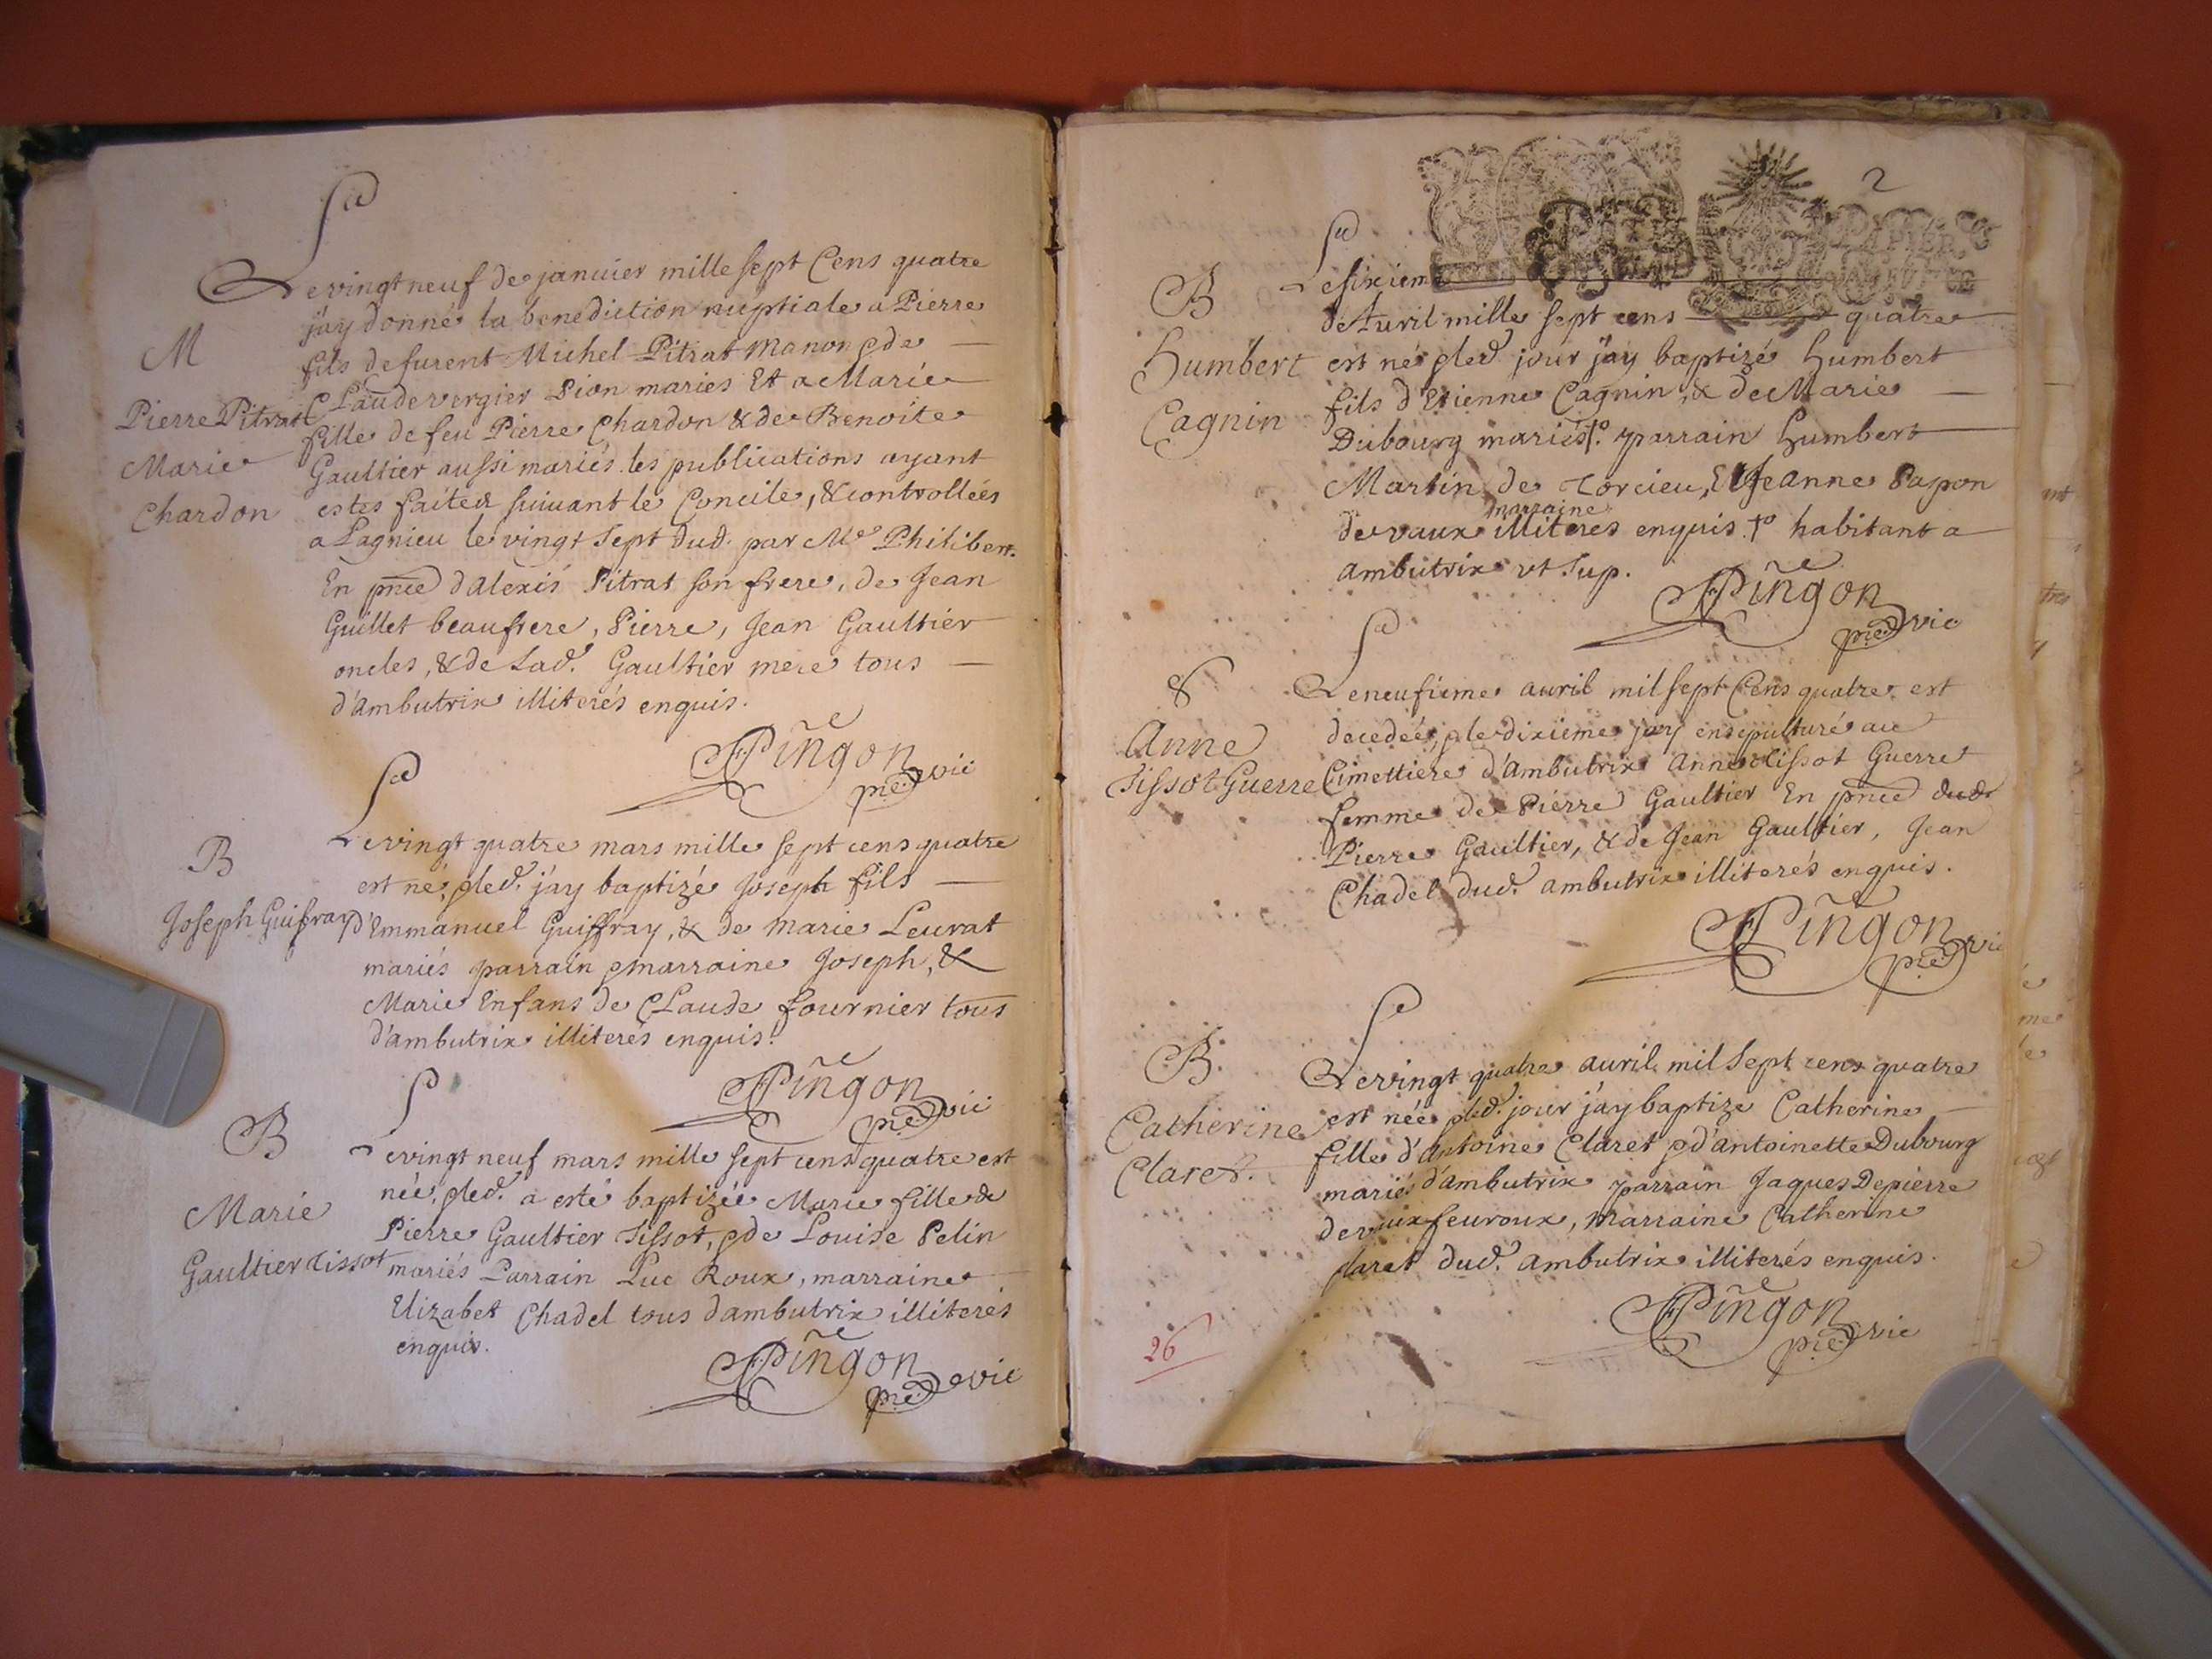 Le vingt neuf de januier mille sept Cens quatre
j'ay donné la benediction nuptiale a Pierre
fils de furent Michel Pitrat Manon & de
Claude vergier Pion mariés Et a Marie
fille de feu Pierre Chardon & de Benoite
Gaultier aussi mariés. les publications ayant
estes faites suiuant le Concile, & controllées
a Lagnieu le vingt sept dud. par Me Philibert.
En pnce d'Alexis Pitrat son frere, de Jean
Guillet beaufrere, Pierre, Jean Gaultier
oncles, & de Lad. Gaultier mere tous
d'ambutrix illiterés enquis.
M
Pierre Pitrat
Marie
Chardon
Pingon
pre vic
Le vingt quatre mars mille sept cens quatre
est né, & led. j'ay baptizé Joseph fils
d'Emmanuel Guiffray, & de Marie Leurat
mariés parrain & marraine Joseph, &
Marie Enfans de Claude fournier tous
d'ambutrix illiterés enquis.
B
Joseph Guiffray
Pingon
pre vic
Le vingt neuf mars mille sept cens quatre est
née, & led. a esté baptizée Marie fille de
Pierre Gaultier Tissot, & de Louise Pelin
mariés Parrain Luc Roux, marraine
Elizabet Chadel tous d'ambutrix illiterés
enquis.
B
Marie
Gaultier Tissot
Pingon
pre vic
2
Le sixieme
de Auril mille sept cens quatre
est né & led. jour j'ay baptizé Humbert
fils d'Etienne Cagnin, & de Marie
Dubourg mariés †o. parrain Humbert
Martin de Torcieu, Et Jeanne Papon
marraine
de vaux illiteres enquis. †o habitant a
ambutrix vt sup.
B
Humbert
Cagnin
Pingon
pre vic
Le neufieme auril mil sept Cens quatre est
decedée, & le dixieme j'ay ensepulturé au
Cimettiere d'Ambutrix Anne Tissot Guerre
femme de Pierre Gaultier En pnce dud.
Pierre Gaultier, & de Jean Gaultier, Jean
Chadel dud. ambutrix illiterés enquis.
S
Anne
Tissot Guerre
Pingon
pre vic
Le vingt quatre auril mil sept cens quatre
est née & led. jour j'ay baptizé Catherine
fille d'Antoine Claret & d'antoinette Dubourg
mariés d'ambutrix parrain Jaques Depierre
de vaux feuroux, Marraine Catherine
claret dud. ambutrix illiterés enquis.
B.
Catherine
Claret.
Pingon
pre vic
26